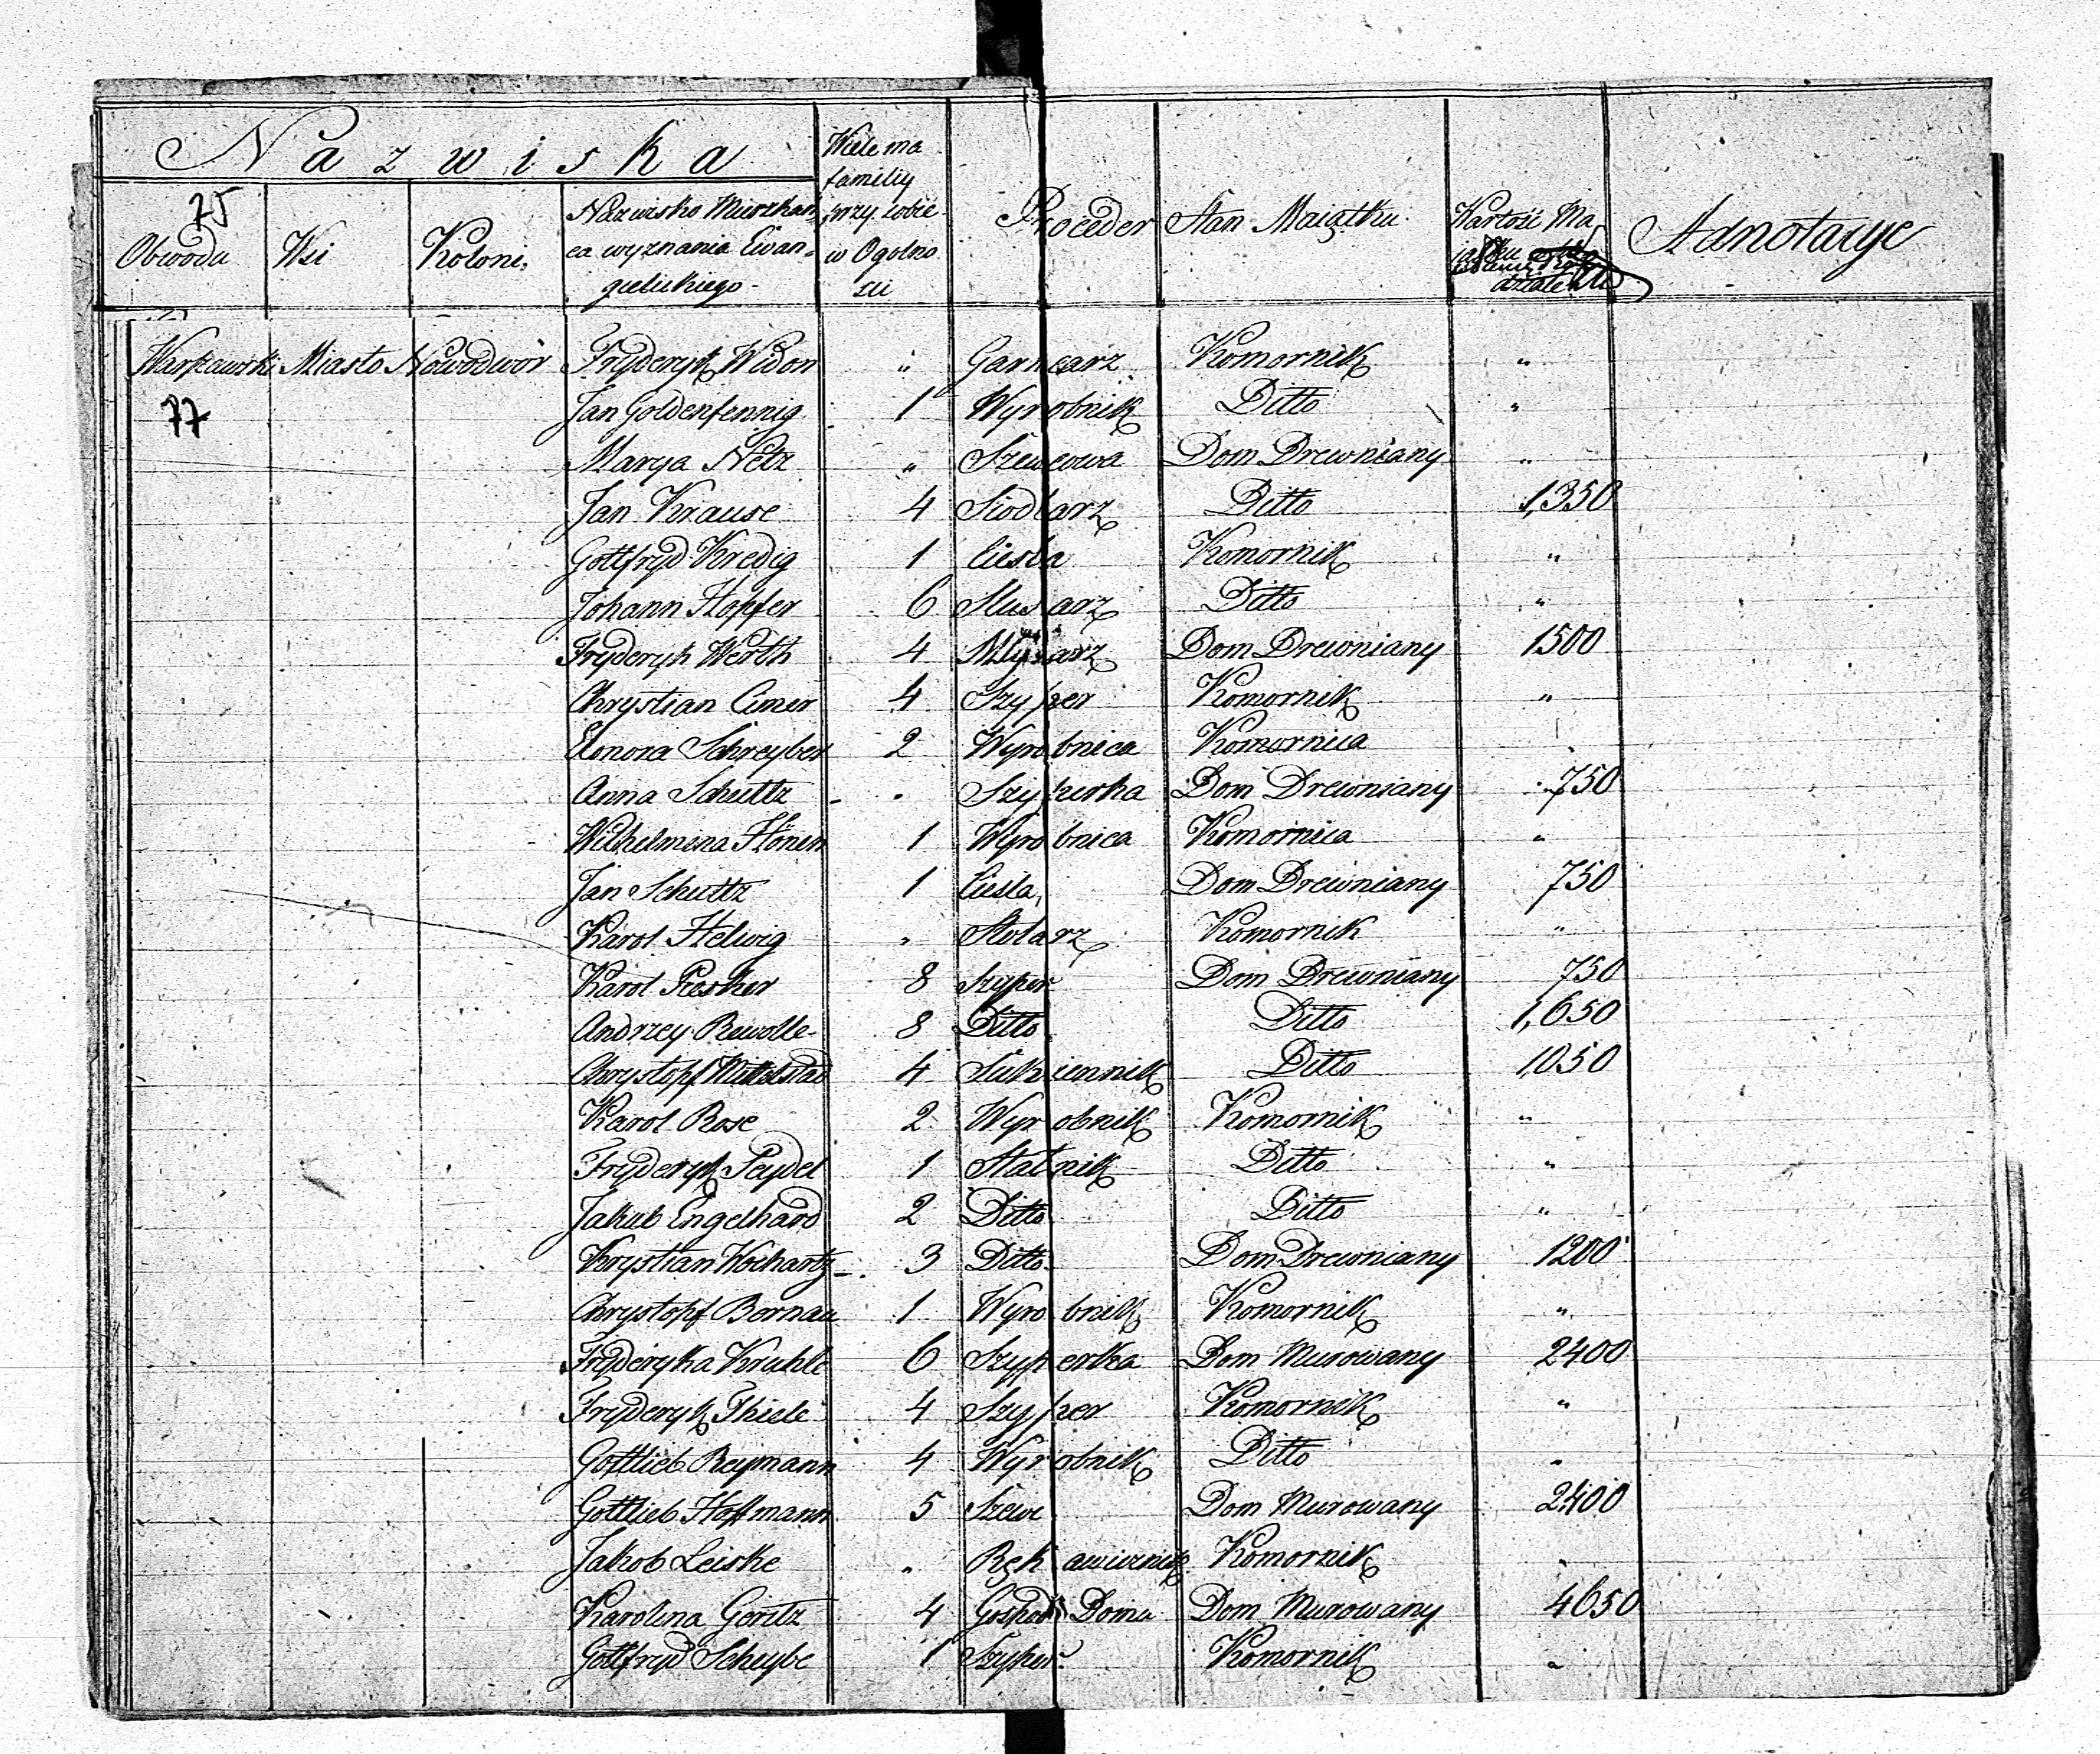 Nazwiska
75
Obwodu Wsi Koloni
Nazwisko Mieszkan=
ca wyznania Ewan=
gielickiego
Wiele ma
familij
przy sobie
w Ogolno
sci
Proceder
Stan Maiątku
Wartość Ma
Adnotacye
Warszawski Miasto Nowodwór Fryderyk Widon " Garncarz Komornik "
77 Jan Goldenfennig 1 Wyrobnik Ditto "
Marya Netz " Szewcowa Dom Drewniany "
Jan Krause 4 Siodlarz Ditto 1,350
Gottfryd Kredig 1 Ciesla Komornik "
Johann Hopfer 6 Slusarz Ditto "
Fryderyk Werth 4 Mlynarz Dom Drewniany 1500
Chrystian Cimer 4 Szyper Komornik "
Elonora Schreyber 2 Wyrobnica Komornica "
Anna Schultz " Szyperka Dom Drewniany 750
Wilhelmina Hönen 1 Wyrobnica Komornica "
Jan Schultz 1 Ciesla, Dom Drewniany 750
Karol Helwig " Stolarz Komornik "
Karol Piesker 8 Szyper Dom Drewniany 750
Andrzey Rewolle 8 Ditto Ditto 1,650
Chrystopf Mittelstad 4 Sukiennik Ditto 1,050
Karol Rose 2 Wyrobnik Komornik "
Fryderyk Seydel 1 Statnik Ditto "
Jakub Engelhard 2 Ditto Ditto "
Krystian Kochartz 3 Ditto Dom Drewniany 1200
Chrystopf Bernau 1 Wyrobnik Komornik "
Fryderyka Kruhle 6 Szyperka Dom Murowany 2400
Fryderyk Thiele 4 Szyper Komornik "
Gottlieb Reymann 4 Wyrobnik Ditto "
Gottlieb Hoffmann 5 Szewc Dom Murowany 2400
Jakob Leiske " Rękawicznik Komornik "
Karolina Geritz 4 Gospod: Domu Dom Murowany 4650
Gottfryd Scheybe 1 Szyper Komornik "